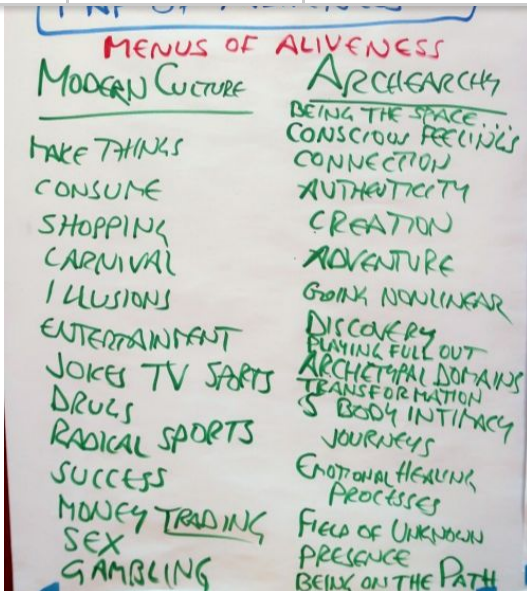 MENUS OF ALIVENESS
MODERN CULTURE
TAKE THINGS
CONSUME
SHOPPING
CARNIVAL
ILLUSIONS
ENTERTAINMENT
JOKES TV SPORTS
DRUGS
RADICAL SPORTS
SUCCESS
MONEY TRADING
SEX
GAMBLING
ARCHEARCHY
BEING THE SPACE...
CONSCIOUS FEELINGS
CONNECTION
AUTHENTICITY
CREATION
ADVENTURE
GOING NONLINEAR
DISCOVERY
PLAYING FULL OUT
ARCHETYPAL DOMAINS
TRANSFORMATION
5 BODY INTIMACY
JOURNEYS
EMOTIONAL HEALING
PROCESSES
FIELD OF UNKNOWN
PRESENCE
BEING ON THE PATH